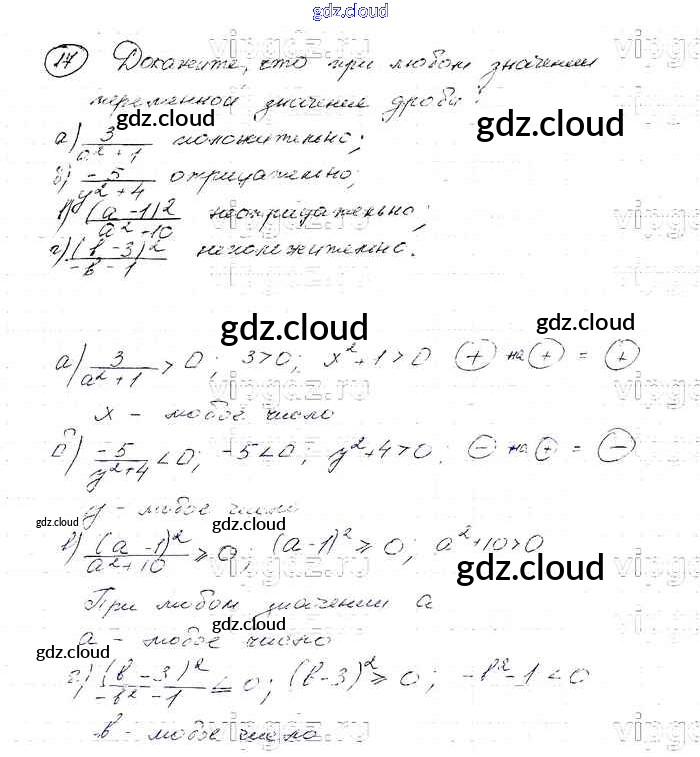 gdz.cloud
17 Докажите, что при любом значении
переменной значение дроби:
а) 3/(a²+1) положительно;
б) -5/(y²+4) отрицательно;
в) (a-1)²/(a²-10) неотрицательно;
г) (b-3)²/(-b-1) неположительно.
gdz.cloud
gdz.cloud
gdz.cloud
gdz.cloud
gdz.cloud
а) 3/(a²+1) > 0; 3>0; x²+1>0 (+) на (+) = (+)
x - любое число
б) -5/(y²+4) < 0; -5<0; y²+4>0; (-) на (+) = (-)
y - любое число
gdz.cloud
gdz.cloud
в) (a-1)²/(a²+10) ≥ 0; (a-1)² ≥ 0; a²+10>0
gdz.cloud
При любом значении a
gdz.cloud
a - любое число
gdz.cloud
г) (b-3)²/(-b²-1) ≤ 0; (b-3)² ≥ 0; -b²-1<0
gdz.cloud
b - любое число
vipgdz.ru